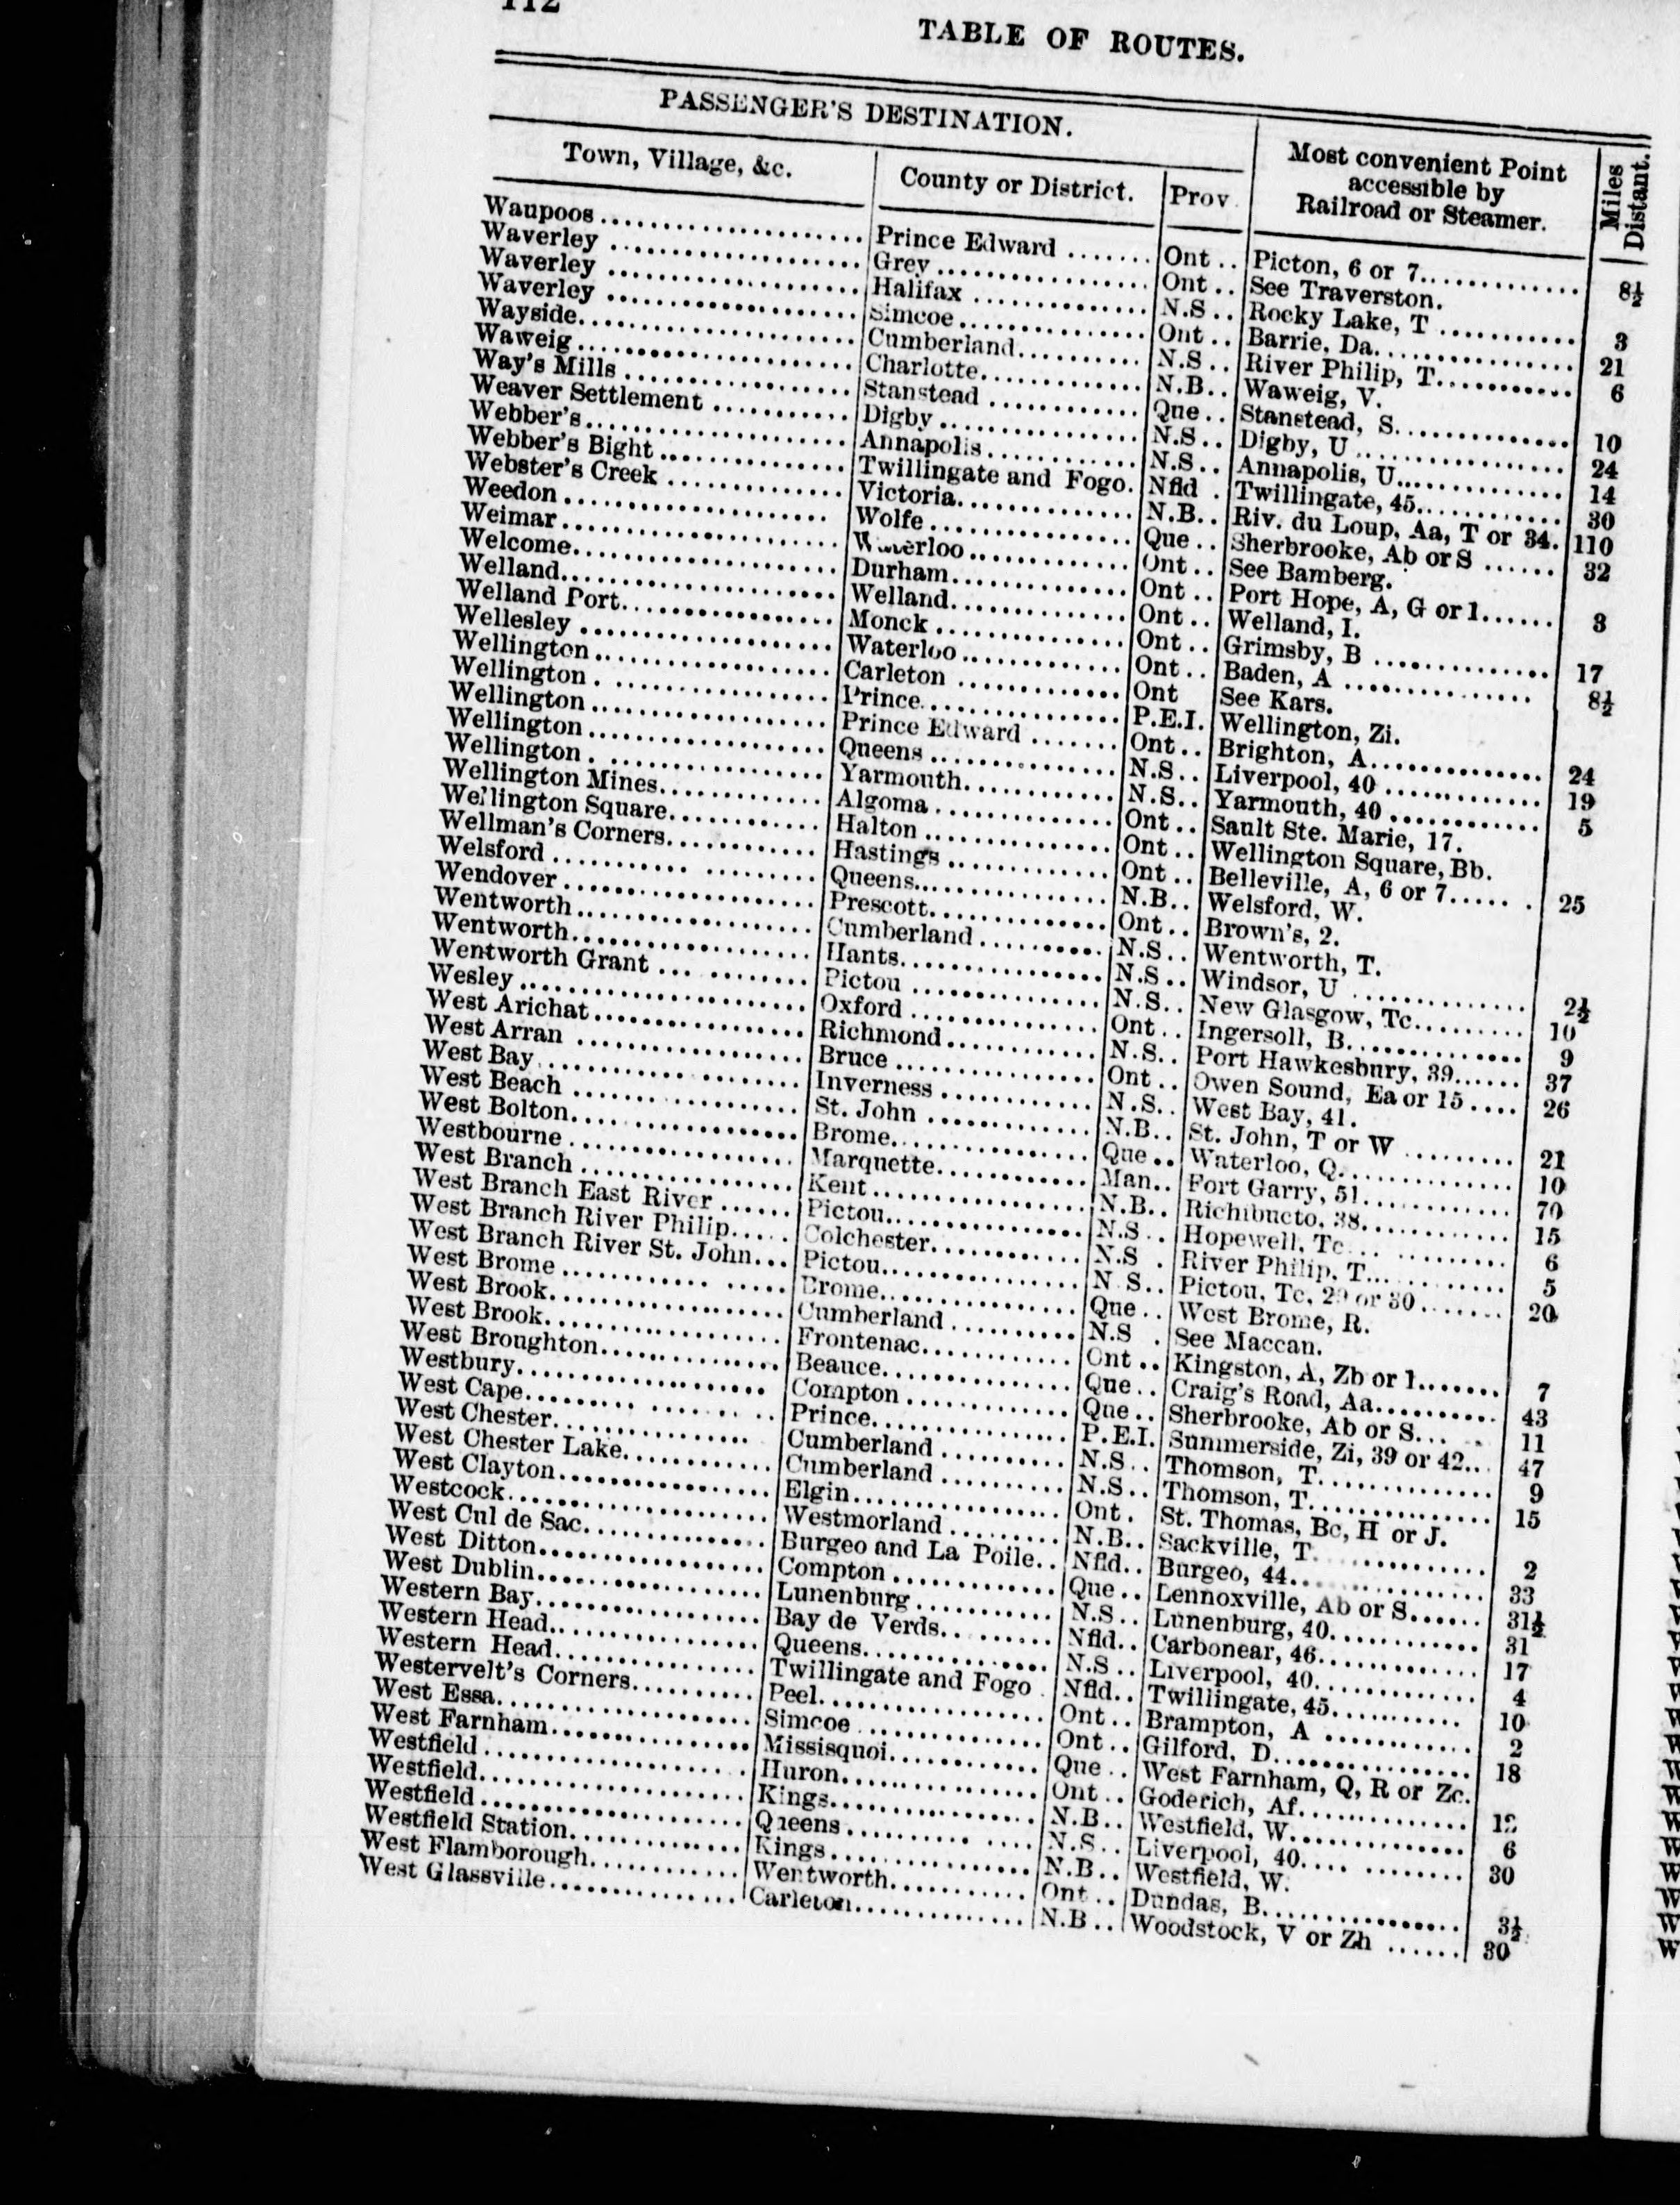 112
TABLE OF ROUTES.
PASSENGER'S DESTINATION.
Town, Village, &c. County or District. Prov. Most convenient Point accessible by Railroad or Steamer. Miles Distant.
Waupoos ..... Prince Edward ..... Ont .. Picton, 6 or 7 ..... 8½
Waverley ..... Grey ..... Ont .. See Traverston.
Waverley ..... Halifax ..... N.S .. Rocky Lake, T ..... 3
Waverley ..... Simcoe ..... Ont .. Barrie, Da ..... 21
Wayside ..... Cumberland ..... N.S .. River Philip, T ..... 6
Waweig ..... Charlotte ..... N.B .. Waweig, V.
Way's Mills ..... Stanstead ..... Que .. Stanstead, S ..... 10
Weaver Settlement ..... Digby ..... N.S .. Digby, U ..... 24
Webber's ..... Annapolis ..... N.S .. Annapolis, U ..... 14
Webber's Bight ..... Twillingate and Fogo. Nfld . Twillingate, 45 ..... 30
Webster's Creek ..... Victoria ..... N.B .. Riv. du Loup, Aa, T or 34. 110
Weedon ..... Wolfe ..... Que .. Sherbrooke, Ab or S ..... 32
Weimar ..... Waterloo ..... Ont .. See Bamberg.
Welcome ..... Durham ..... Ont .. Port Hope, A, G or 1 ..... 3
Welland ..... Welland ..... Ont .. Welland, I.
Welland Port ..... Monck ..... Ont .. Grimsby, B ..... 17
Wellesley ..... Waterloo ..... Ont .. Baden, A ..... 8½
Wellington ..... Carleton ..... Ont See Kars.
Wellington ..... Prince ..... P.E.I. Wellington, Zi.
Wellington ..... Prince Edward ..... Ont .. Brighton, A ..... 24
Wellington ..... Queens ..... N.S .. Liverpool, 40 ..... 19
Wellington ..... Yarmouth ..... N.S .. Yarmouth, 40 ..... 5
Wellington Mines ..... Algoma ..... Ont .. Sault Ste. Marie, 17.
Wellington Square ..... Halton ..... Ont .. Wellington Square, Bb.
Wellman's Corners ..... Hastings ..... Ont .. Belleville, A, 6 or 7 ..... 25
Welsford ..... Queens ..... N.B .. Welsford, W.
Wendover ..... Prescott ..... Ont .. Brown's, 2.
Wentworth ..... Cumberland ..... N.S .. Wentworth, T.
Wentworth ..... Hants ..... N.S .. Windsor, U ..... 2½
Wentworth Grant ..... Pictou ..... N.S .. New Glasgow, Tc ..... 10
Wesley ..... Oxford ..... Ont .. Ingersoll, B ..... 9
West Arichat ..... Richmond ..... N.S .. Port Hawkesbury, 39 ..... 37
West Arran ..... Bruce ..... Ont .. Owen Sound, Ea or 15 .... 26
West Bay ..... Inverness ..... N.S .. West Bay, 41.
West Beach ..... St. John ..... N.B .. St. John, T or W ..... 21
West Bolton ..... Brome ..... Que .. Waterloo, Q ..... 10
Westbourne ..... Marquette ..... Man .. Fort Garry, 51 ..... 70
West Branch ..... Kent ..... N.B .. Richibucto, 38 ..... 15
West Branch East River ..... Pictou ..... N.S .. Hopewell, Tc ..... 6
West Branch River Philip ..... Colchester ..... N.S . River Philip, T ..... 5
West Branch River St. John ... Pictou ..... N.S .. Pictou, Tc, 29 or 30 ..... 20
West Brome ..... Brome ..... Que .. West Brome, R.
West Brook ..... Cumberland ..... N.S . See Maccan.
West Brook ..... Frontenac ..... Ont .. Kingston, A, Zb or 1 ..... 7
West Broughton ..... Beauce ..... Que .. Craig's Road, Aa ..... 43
Westbury ..... Compton ..... Que .. Sherbrooke, Ab or S ..... 11
West Cape ..... Prince ..... P.E.I. Summerside, Zi, 39 or 42 ... 47
West Chester ..... Cumberland ..... N.S .. Thomson, T ..... 9
West Chester Lake ..... Cumberland ..... N.S .. Thomson, T ..... 15
West Clayton ..... Elgin ..... Ont . St. Thomas, Bc, H or J.
Westcock ..... Westmorland ..... N.B .. Sackville, T ..... 2
West Cul de Sac ..... Burgeo and La Poile .. Nfld .. Burgeo, 44 ..... 33
West Ditton ..... Compton ..... Que .. Lennoxville, Ab or S ..... 31½
West Dublin ..... Lunenburg ..... N.S .. Lunenburg, 40 ..... 31
Western Bay ..... Bay de Verds ..... Nfld .. Carbonear, 46 ..... 17
Western Head ..... Queens ..... N.S .. Liverpool, 40 ..... 4
Western Head ..... Twillingate and Fogo . Nfld .. Twillingate, 45 ..... 10
Westervelt's Corners ..... Peel ..... Ont .. Brampton, A ..... 2
West Essa ..... Simcoe ..... Ont .. Gilford, D ..... 18
West Farnham ..... Missisquoi ..... Que .. West Farnham, Q, R or Zc.
Westfield ..... Huron ..... Ont .. Goderich, Af ..... 12
Westfield ..... Kings ..... N.B .. Westfield, W ..... 6
Westfield ..... Queens ..... N.S .. Liverpool, 40 ..... 30
Westfield Station ..... Kings ..... N.B .. Westfield, W.
West Flamborough ..... Wentworth ..... Ont .. Dundas, B ..... 3½
West Glassville ..... Carleton ..... N.B .. Woodstock, V or Zh ..... 30